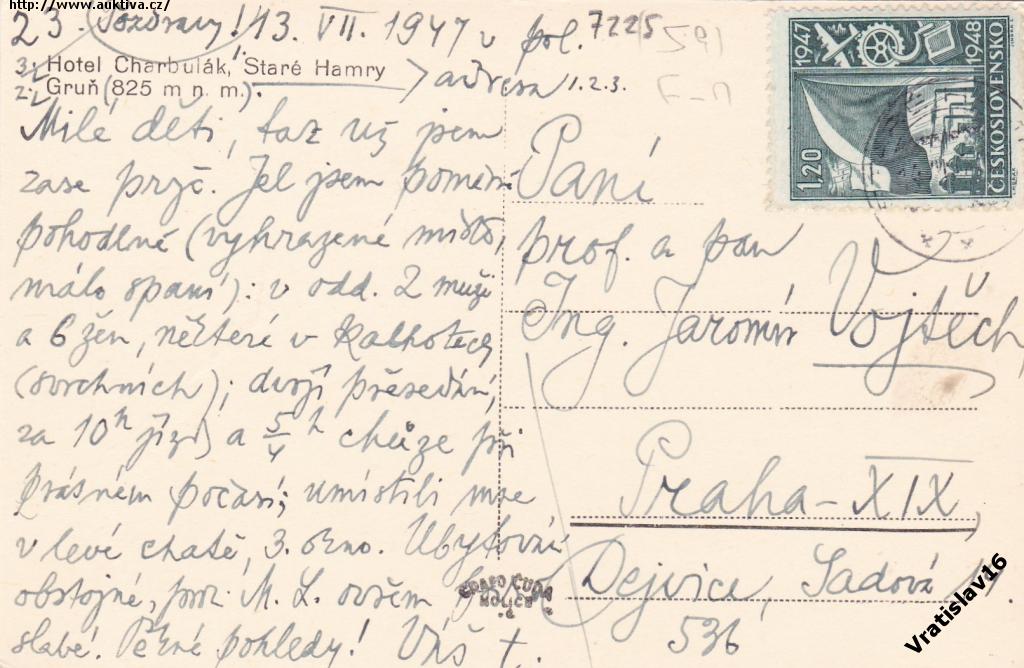 http://www.auktiva.cz/
23. Pozdravy! 13. VII. 1947 v pol. 7225
Hotel Charbulák, Staré Hamry
Gruň (825 m n. m.).
adresa 1.2.3.
Milé děti, tož už jsem
zase pryč. Jel jsem poměr.
pohodlně (vyhrazené místo,
málo spaní): v odd. 2 muži
a 6 žen, některé v kalhotech
(svrchních); dvojí přesedání,
za 10h jízdy a 5/4 h chůze při
krásném počasí; umístili mne
v levé chatě, 3. okno. Ubytování
obstojné, M. L. ovšem
slabé. Pěkné pohledy! Váš t.
Paní
prof. a pan
Ing. Jaromír Vojtěch
Praha-XIX,
Dejvice, Sadová
536
1947
1948
ČESKOSLOVENSKO
1.20
GRAFO ČUDA
HOLICE
Vratislav16